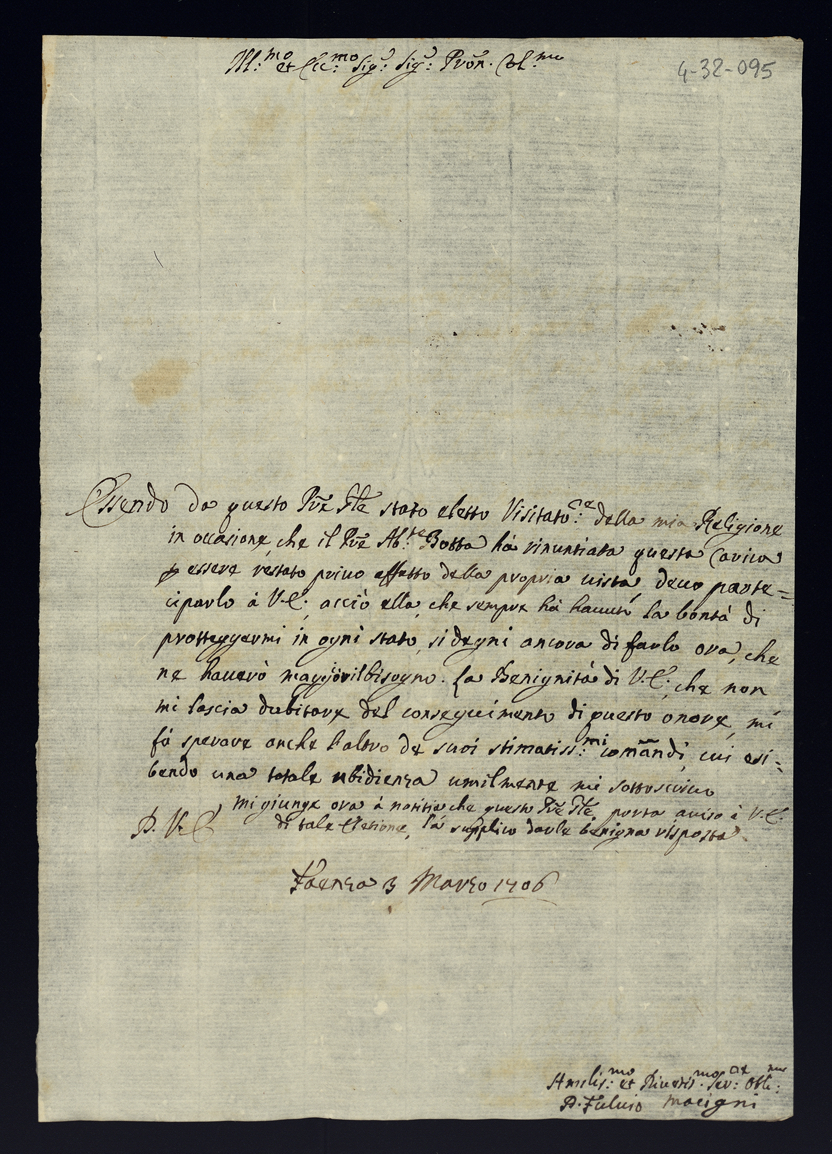 Ill:mo et Ecc:mo Sig: Sig: Pron. Col:mo
4-32-095
Essendo da questo Pre Gle stato eletto Visitato:re della mia Religione
in occasione che il Pre Ab:te Botta hà rinuntiata questa Carica
p essere restato privo affatto della propria vista devo parte=
ciparlo à V.E:, acciò ella, che sempre hà havuto la bontà di
protteggermi in ogni stato, si degni ancora di farlo ora, che
ne haverò maggior il bisogno. La Benignità di V.E:, che non
mi lascia dubitare del conseguimento di questo onore, mi
fà sperare anche l'altro de suoi stimatiss:mi comandi, cui esi=
bendo una totale ubidienza umilmente mi sottoscrivo
Mi giunge ora à notitia che questo Pre Gle. porta aviso à V.E:
D. V.E di tale Eletione, la supplico darle benigna risposta
Faenza 3 Marzo 1706
Humilis:mo et Rivertis:mo Ser:re Obli:mo
D. Fulvio Macigni